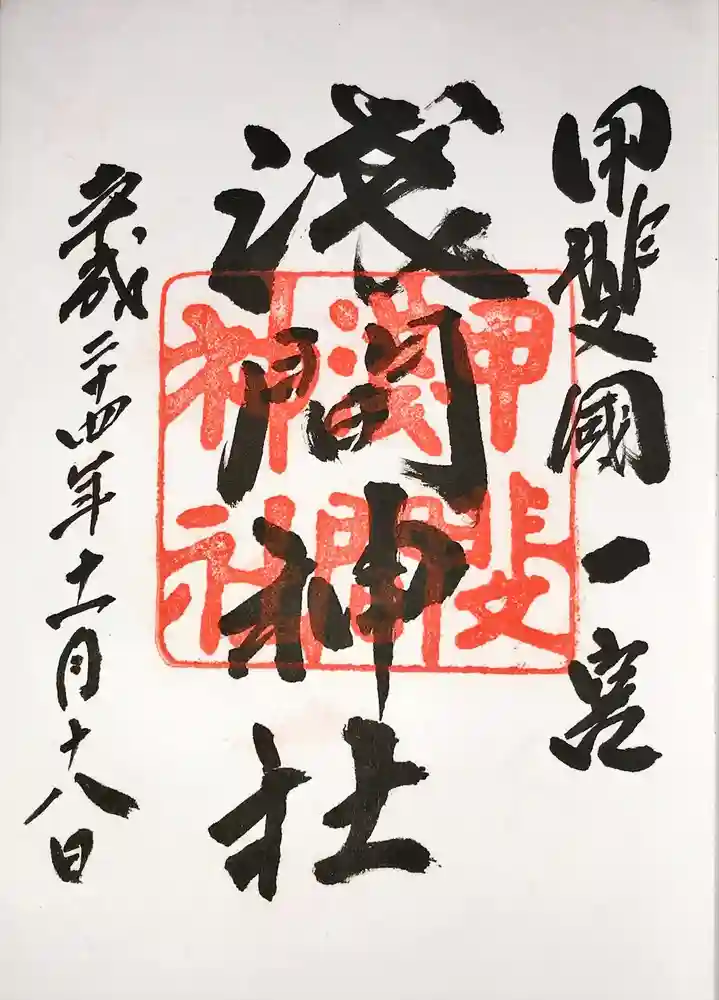 甲斐國一宮
淺間神社
甲斐
淺間
神社
平成二十四年十一月十八日